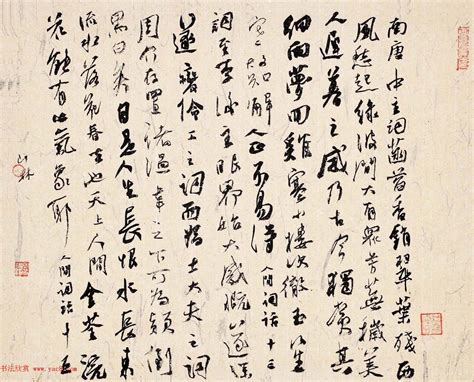 南唐中主詞菡萏香銷翠葉殘西
風愁起綠波間大有眾芳蕪穢美
人遲暮之感乃古今獨賞其
細雨夢回雞塞小樓吹徹玉笙
寒故知解人正不易得 人間詞話十三
詞至李後主眼界始大感慨遂深
遂變伶工之詞而為士大夫之詞
周介存置諸溫韋之下可為顛倒
黑白矣自是人生長恨水長東
流水落花春去也天上人間金荃浣
花能有此氣象耶 人間詞話十五
书法欣赏